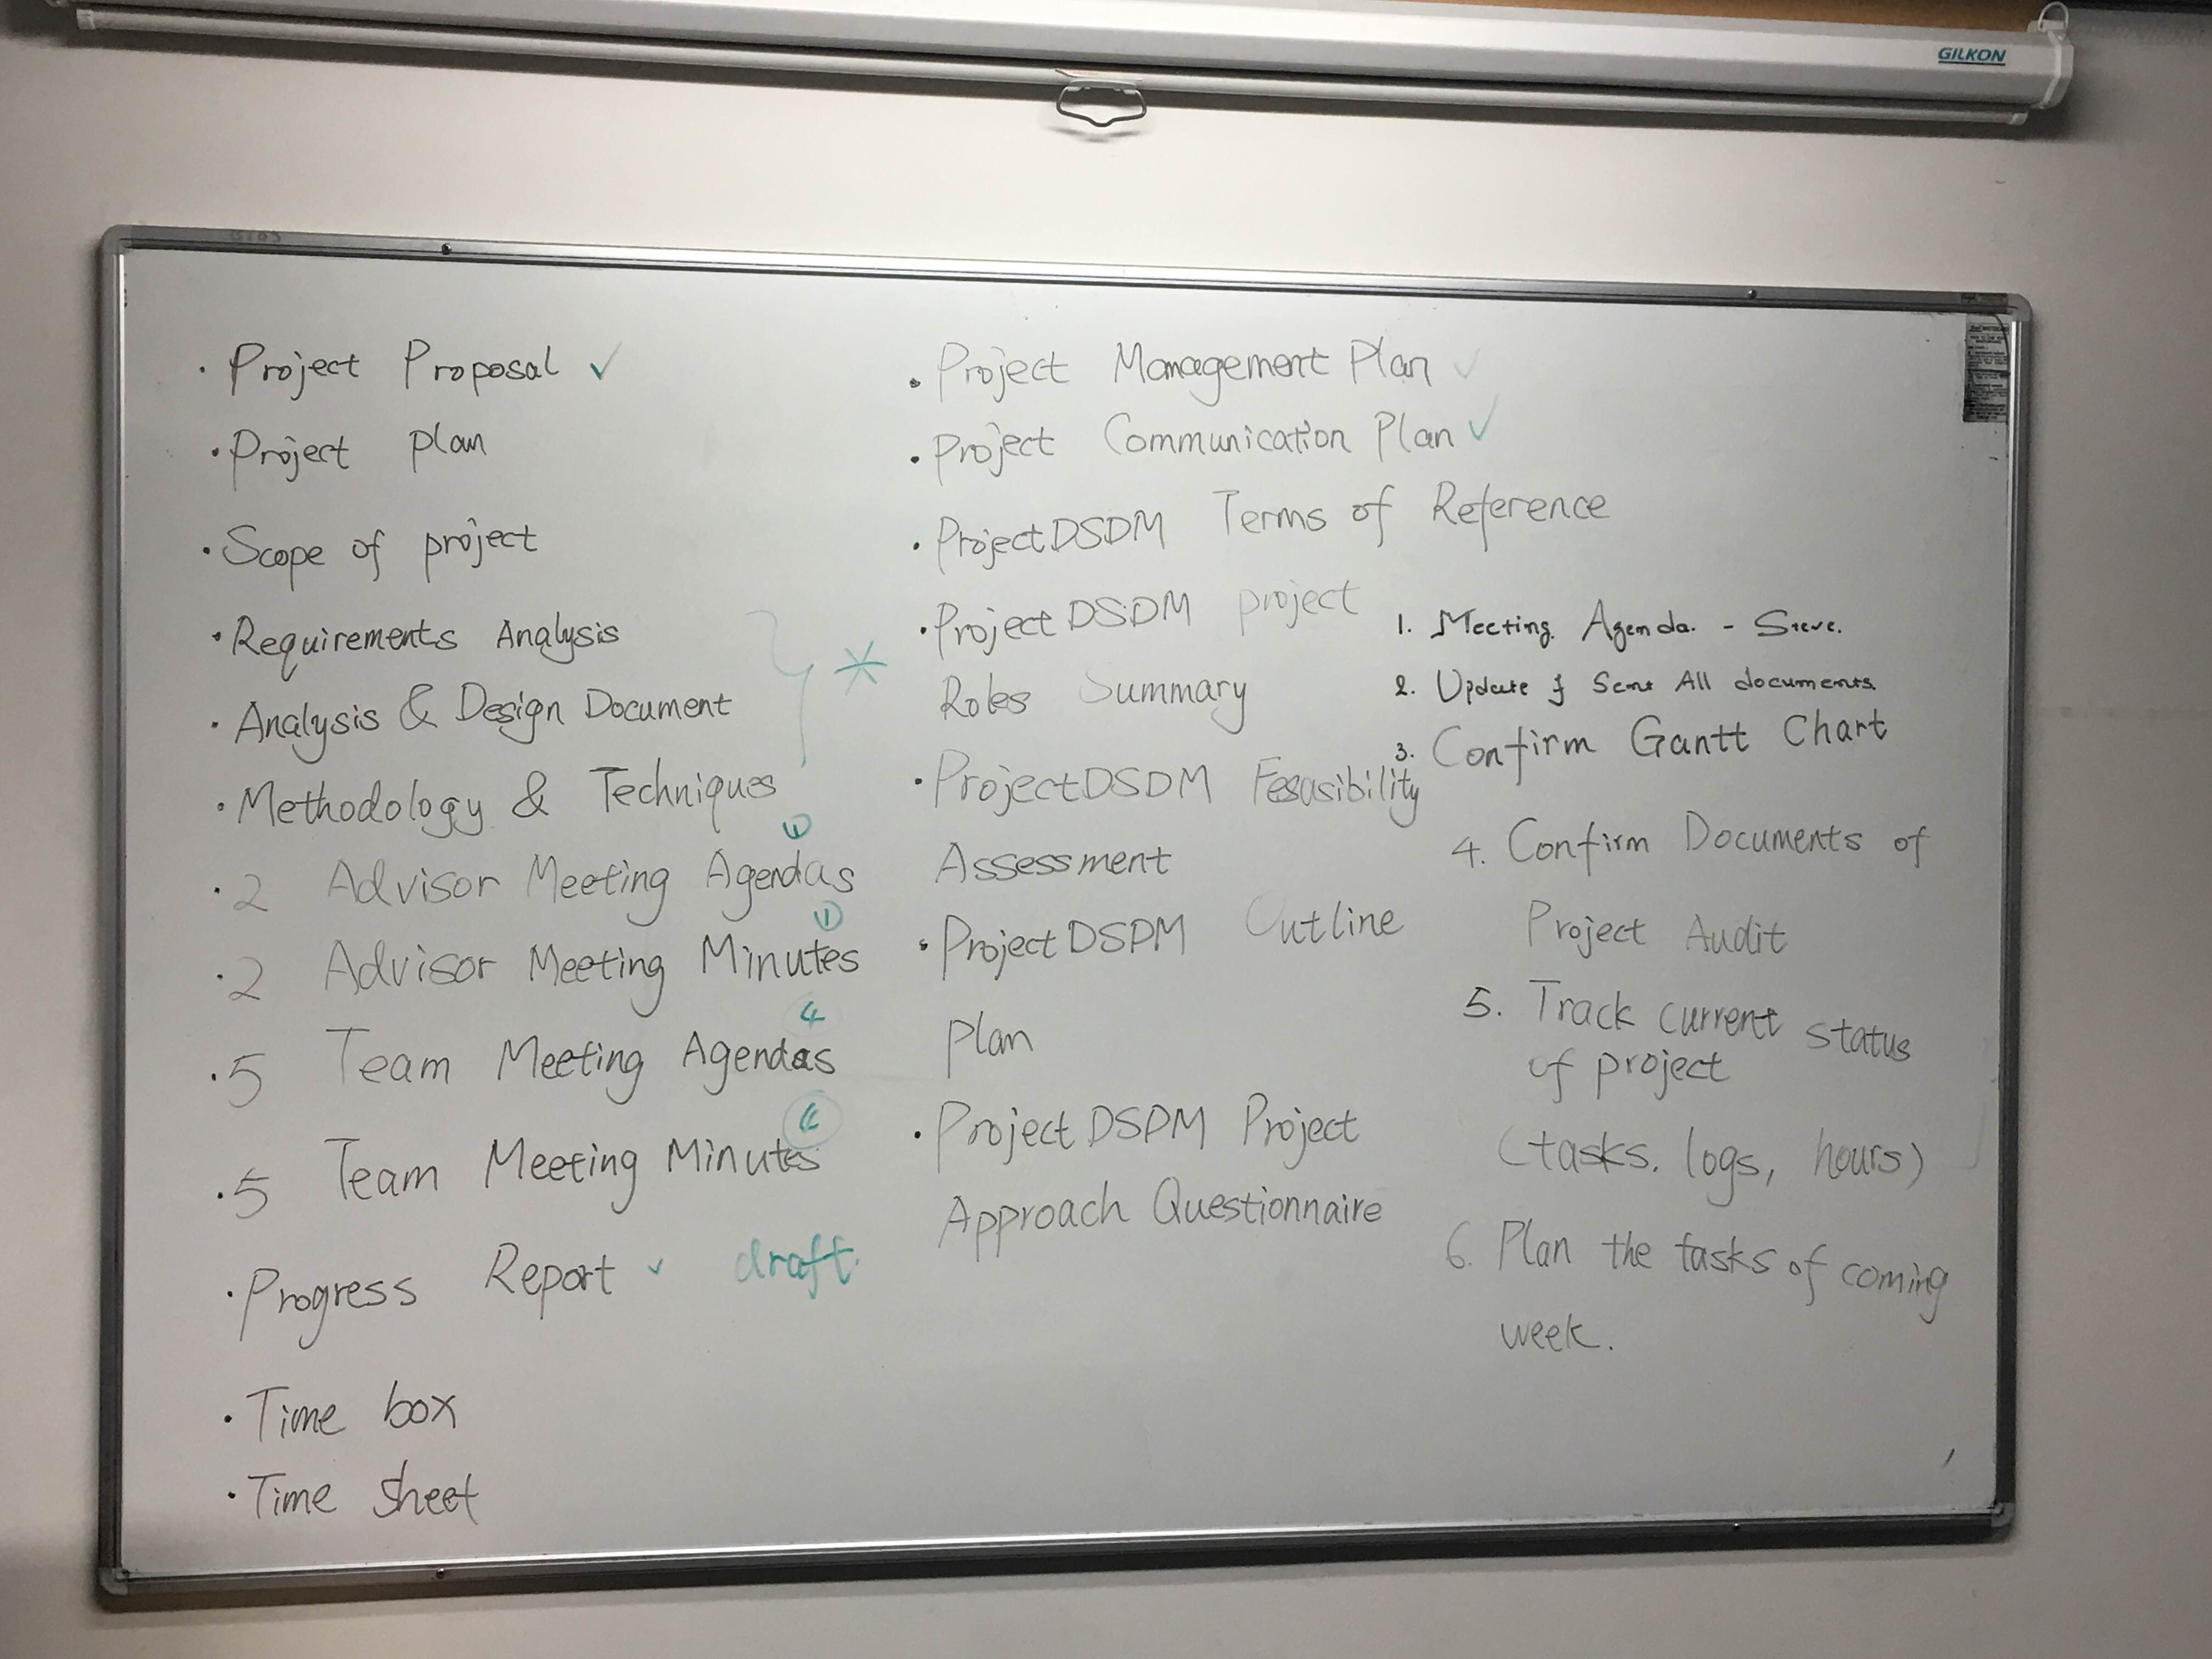 GILKON
· Project Proposal ✓
· Project plan
· Scope of project
· Requirements Analysis
· Analysis & Design Document
*
· Methodology & Techniques
①
· 2 Advisor Meeting Agendas
①
· 2 Advisor Meeting Minutes
4
· 5 Team Meeting Agendas
· 5 Team Meeting Minutes
· Progress Report ✓ draft.
· Time box
· Time sheet
· Project Management Plan ✓
· Project Communication Plan ✓
· Project DSDM Terms of Reference
· Project DSDM project
Roles Summary
· Project DSDM Fesasibility
Assessment
· Project DSDM Outline
plan
· Project DSDM Project
Approach Questionnaire
1. Meeting Agenda. - Steve.
2. Update & Sent All documents
3. Confirm Gantt Chart
4. Confirm Documents of
Project Audit
5. Track current status
of project
(tasks. logs, hours)
6. Plan the tasks of coming
week.